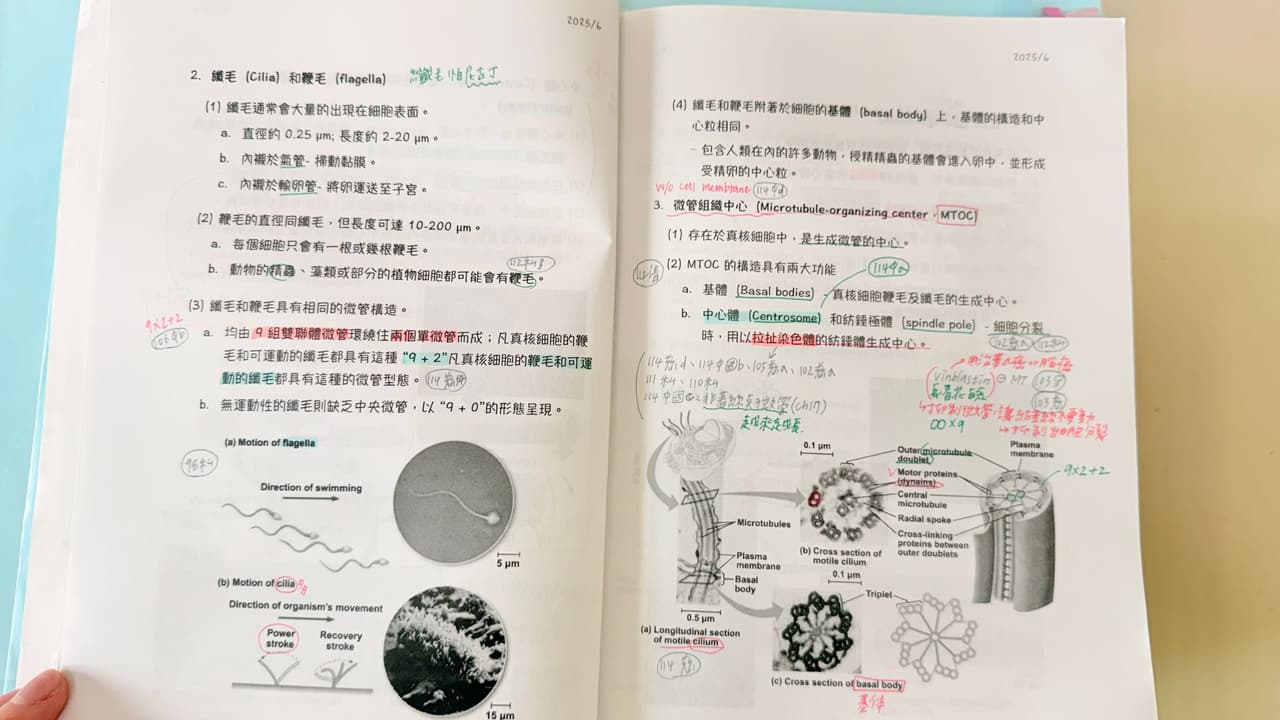 2025/6
2. 纖毛 (Cilia) 和鞭毛 (flagella) 纖毛怕尼古丁
(1) 纖毛通常會大量的出現在細胞表面。
a. 直徑約 0.25 μm; 長度約 2-20 μm。
b. 內襯於氣管- 掃動黏膜。
c. 內襯於輸卵管- 將卵運送至子宮。
(2) 鞭毛的直徑同纖毛，但長度可達 10-200 μm。
a. 每個細胞只會有一根或幾根鞭毛。
b. 動物的精蟲、藻類或部分的植物細胞都可能會有鞭毛。
(3) 纖毛和鞭毛具有相同的微管構造。
9×2+2
a. 均由 9 組雙聯體微管環繞住兩個單微管而成；凡真核細胞的鞭
毛和可運動的纖毛都具有這種 “9 + 2”凡真核細胞的鞭毛和可運
動的纖毛都具有這種的微管型態。
b. 無運動性的纖毛則缺乏中央微管，以 “9 + 0”的形態呈現。
(a) Motion of flagella
Direction of swimming
5 μm
(b) Motion of cilia
Direction of organism's movement
Power
stroke
Recovery
stroke
15 μm
2025/6
(4) 纖毛和鞭毛附著於細胞的基體 (basal body) 上，基體的構造和中
心粒相同。
- 包含人類在內的許多動物，授精精蟲的基體會進入卵中，並形成
受精卵的中心粒。
w/o cell membrane
3. 微管組織中心 (Microtubule-organizing center，MTOC)
(1) 存在於真核細胞中，是生成微管的中心。
(2) MTOC 的構造具有兩大功能
a. 基體 (Basal bodies) - 真核細胞鞭毛及纖毛的生成中心。
b. 中心體 (Centrosome) 和紡錘極體 (spindle pole) - 細胞分裂
時，用以拉扯染色體的紡錘體生成中心。
vinblastin
長春花鹼
∞×9
0.1 μm
Outer microtubule
doublet
Motor proteins
(dyneins)
Central
microtubule
Radial spoke
Cross-linking
proteins between
outer doublets
Plasma
membrane
9×2+2
Microtubules
Plasma
membrane
Basal
body
(b) Cross section of
motile cilium
0.5 μm
(a) Longitudinal section
of motile cilium
0.1 μm
Triplet
(c) Cross section of basal body
基体